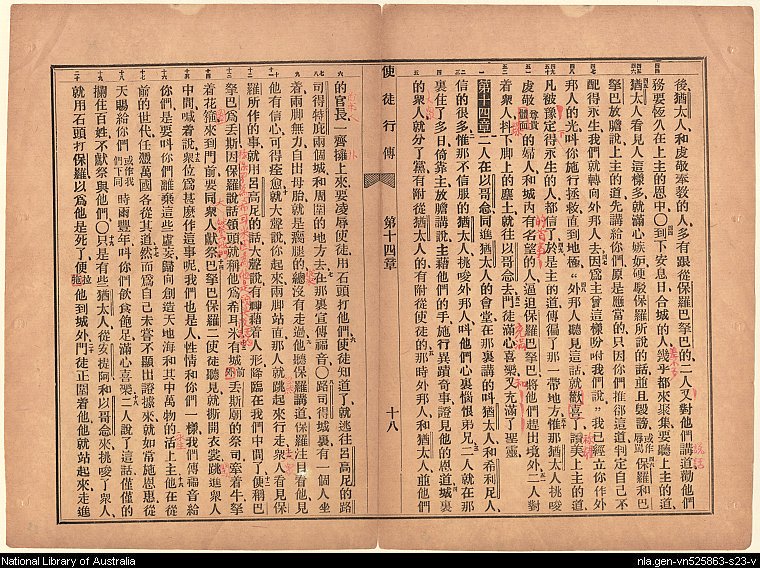 後猶太人和虔敬奉教的人多有跟從保羅巴拏巴的二人又對他們講道勸他們
務要恆久在上主的恩中〇到下安息日合城的人幾乎都來聚集要聽上主的道
猶太人看見人這樣多就滿心嫉妒硬駁保羅所說的話並且毀謗或作辱罵保羅和巴
拏巴放膽說上主的道先講給你們原是應當的只因你們推卻這道判定自己不
配得永生我們就轉向外邦人去因爲主曾這樣吩咐我們說我已經立你作外
邦人的光叫你施行拯救直到地極外邦人聽見這話就歡喜了讚美上主的道
凡被豫定得永生的人都信了於是主的道傳徧了那一帶地方惟那猶太人挑唆
虔敬尊貴體面的婦人和城內有名望的人逼迫保羅巴拏巴將他們趕出境外二人對
着衆人抖下腳上的塵土就往以哥念去門徒滿心喜樂又充滿了聖靈
第十四章二人在以哥念同進猶太人的會堂在那裏講的叫猶太人和希利尼人
信的很多惟那不信服的猶太人挑唆外邦人叫他們心裏惱恨弟兄二人就在那
裏住了多日倚靠主放膽講說主藉他們的手施行異蹟奇事證見他的恩道城裏
的衆人就分了黨有附從猶太人的有附從使徒的那時外邦人和猶太人並他們
使徒行傳 第十四章 十八
的官長一齊擁上來要凌辱使徒用石頭打他們使徒知道了就逃往呂高尼的路
司得特庇兩個城和周圍的地方去在那裏宣傳福音〇路司得城裏有一個人坐
着兩脚無力自出母胎就是瘸腿的總沒有走過他聽保羅講道保羅注目看他見
他有信心可得痊愈就大聲說你起來兩脚站直那人就跳起來行走衆人看見保
羅所作的事就用呂高尼的話大聲說有神藉着人形降臨在我們中間了便稱巴
拏巴爲丟斯因保羅說話領頭就稱他爲希耳米有城外丟斯廟的祭司牽着牛拏
着花箍來到門前要同衆人獻祭巴拏巴保羅二使徒聽見就撕開衣裳跳進衆人
中間喊着說衆位爲甚麼作這事呢我們也是人性情和你們一樣我們傳福音給
你們是要叫你們離棄這些虛妄歸向創造天地海和其中萬物的活上主他在從
前的世代任憑萬國各從其道然而爲自己未嘗不顯出證據來就如常施恩惠從
天賜給你們或作我們下同時雨豐年叫你們飲食飽足滿心喜樂二人說了這話僅僅的
攔住百姓不獻祭與他們〇只是有些猶太人從安提阿和以哥念來挑唆了衆人
就用石頭打保羅以爲他是死了便拖他到城外門徒正圍着他他就站起來走進
National Library of Australia
nla.gen-vn525863-s23-v